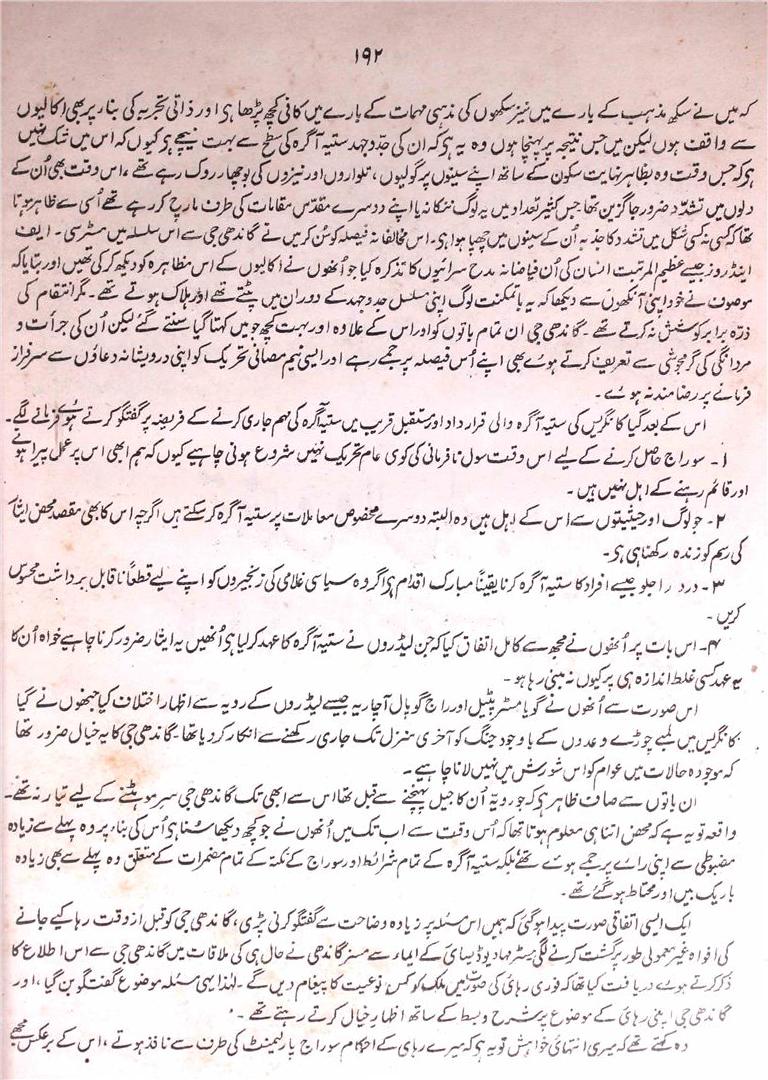 ۱۹۲
کہ میں نے سکھ مذہب کے بارے میں نیز سکھوں کی مذہبی مہمات کے بارے میں کافی کچھ پڑھا ہی اور ذاتی تجربہ کی بناء پر بھی اکالیوں
سے واقف ہوں لیکن میں جس نتیجہ پر پہنچا ہوں وہ یہ ہی کہ ان کی جدوجہد ستیہ آگرہ کی سطح سے بہت نیچے ہی کیوں کہ اس میں شک نہیں
ہی کہ جس وقت وہ بظاہر نہایت سکون کے ساتھ اپنے سینوں پر گولیوں، تلواروں اور نیزوں کی بوچھار روک رہے تھے، اس وقت بھی اُن کے
دلوں میں تشدّد ضرور جاگزین تھا، جس کثیر تعداد میں یہ لوگ ننکانہ یا اپنے دوسرے مقدّس مقامات کی طرف مارچ کر رہے تھے اُسی سے ظاہر ہوتا
تھا کہ کسی نہ کسی شکل میں تشدد کا جذبہ اُن کے سینوں میں چھپا ہوا ہی۔ اس مخالفانہ فیصلہ کو سُن کر میں نے گاندھی جی سے اس سلسلہ میں مسٹر سی۔ ایف
اینڈروز جیسے عظیم المرتبت انسان کی اُن فیاضانہ مدح سرائیوں کا تذکرہ کیا جو اُنھوں نے اکالیوں کے اس مظاہرہ کو دیکھ کر کی تھیں اور بتایا کہ
موصوف نے خود اپنی آنکھوں سے دیکھا کہ یہ باتمکنت لوگ اپنی مسلسل جدوجہد کے دوران میں پٹتے تھے اور ہلاک ہوتے تھے۔ مگر انتقام کی
ذرّہ برابر کوشش نہ کرتے تھے۔ گاندھی جی ان تمام باتوں کو اور اس کے علاوہ اور بہت کچھ جو میں کہتا گیا سنتے گئے لیکن اُن کی جرأت و
مردانگی کی گرمجوشی سے تعریف کرتے ہوئے بھی اپنے اُس فیصلہ پر جمے رہے اور ایسی نیم مصافی تحریک کو اپنی درویشانہ دعاؤں سے سرفراز
فرمانے پر رضامند نہ ہوئے۔
اس کے بعد گیا کانگریس کی ستیہ آگرہ والی قرارداد اور مستقبل قریب میں ستیہ آگرہ کی مہم جاری کرنے کے فریضہ پر گفتگو کرتے ہوئے فرمانے لگے۔
۱۔ سوراج حاصل کرنے کے لیے اس وقت سول نافرمانی کی کوئی عام تحریک نہیں شروع ہونی چاہیے کیوں کہ ہم ابھی اس پر عمل پیرا ہونے
اور قائم رہنے کے اہل نہیں ہیں۔
۲۔ جو لوگ اور حیثیتوں سے اس کے اہل ہیں وہ البتہ دوسرے مخصوص معاملات پر ستیہ آگرہ کر سکتے ہیں اگرچہ اس کا بھی مقصد محض ایثار
کی رسم کو زندہ رکھنا ہی ہی۔
۳۔ درد راجلو جیسے افراد کا ستیہ آگرہ کرنا یقیناً مبارک اقدام ہی اگر وہ سیاسی غلامی کی زنجیروں کو اپنے لیے قطعاً ناقابل برداشت محسوس
کریں۔
۴۔ اس بات پر اُنھوں نے مجھ سے کامل اتفاق کیا کہ جن لیڈروں نے ستیہ آگرہ کا عہد کر لیا ہی اُنھیں یہ ایثار ضرور کرنا چاہیے خواہ اُن کا
یہ عہد کسی غلط اندازہ ہی پر کیوں نہ مبنی رہا ہو۔
اس صورت سے اُنھوں نے گویا مسٹر پٹیل اور راج گوپال آچاریہ جیسے لیڈروں کے رویہ سے اظہار اختلاف کیا جنھوں نے گیا
کانگریس میں لمبے چوڑے وعدوں کے باوجود جنگ کو آخری منزل تک جاری رکھنے سے انکار کر دیا تھا۔ گاندھی جی کا یہ خیال ضرور تھا
کہ موجودہ حالات میں عوام کو اس شورش میں نہیں لانا چاہیے۔
ان باتوں سے صاف ظاہر ہی کہ جو رویہ اُن کا جیل پہنچنے سے قبل تھا اس سے ابھی تک گاندھی جی سرِ مو ہٹنے کے لیے تیار نہ تھے۔
واقعہ تو یہ ہے کہ محض اتنا ہی معلوم ہوتا تھا کہ اُس وقت سے اب تک میں اُنھوں نے جو کچھ دیکھا سُنا ہی اُس کی بناء پر وہ پہلے سے زیادہ
مضبوطی سے اپنی رائے پر جمے ہوئے تھے بلکہ ستیہ آگرہ کے تمام شرائط اور سوراج کے نکتہ کے تمام مضمرات کے متعلق وہ پہلے سے بھی زیادہ
باریک بیں اور محتاط ہو گئے تھے۔
ایک ایسی اتفاقی صورت پیدا ہو گئی کہ ہمیں اس مسئلہ پر زیادہ وضاحت سے گفتگو کرنی پڑی، گاندھی جی کو قبل از وقت رہا کیے جانے
کی افواہ غیر معمولی طور پر گشت کرنے لگی۔ مسٹر مہادیو ڈیسائی کے ایماء سے مسز گاندھی نے حال ہی کی ملاقات میں گاندھی جی سے اس اطلاع کا
ذکر کرتے ہوئے دریافت کیا تھا کہ فوری رہائی کی صورت میں ملک کو کس نوعیت کا پیغام دیں گے۔ لہٰذا یہی مسئلہ موضوع گفتگو بن گیا، اور
گاندھی جی اپنی رہائی کے موضوع پر شرح و بسط کے ساتھ اظہار خیال کرتے رہتے تھے۔
وہ کہتے تھے کہ میری انتہائی خواہش تو یہ ہی کہ میرے رہائی کے احکام سوراج پارلیمنٹ کی طرف سے نافذ ہوتے، اس کے برعکس مجھے